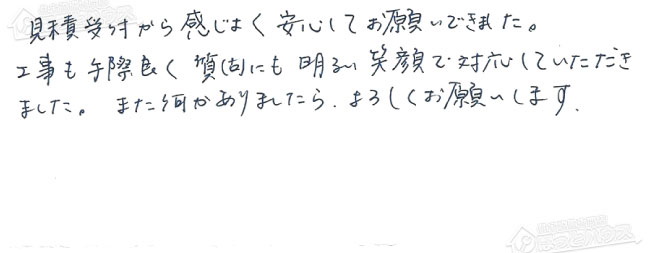 見積受付から感じよく安心してお願いできました。
工事も手際良く質問にも明るい笑顔で対応していただき
ました。また何かありましたら、よろしくお願いします.